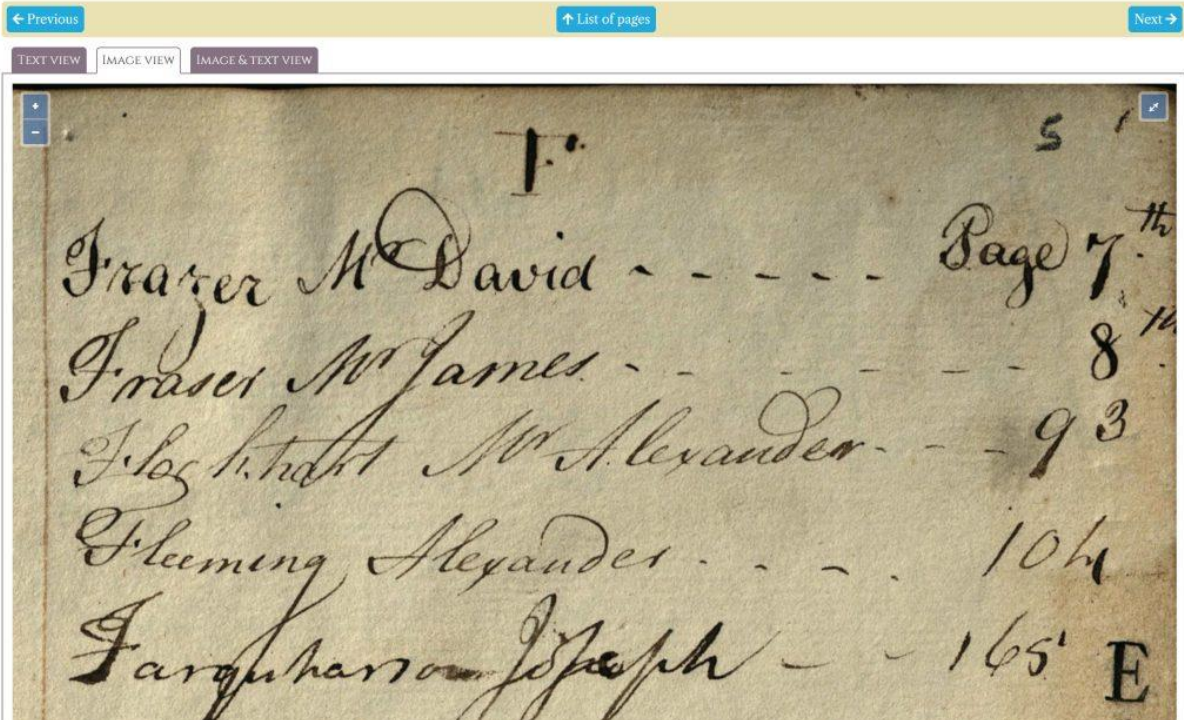 ← Previous
↑ List of pages
Next →
TEXT VIEW
IMAGE VIEW
IMAGE & TEXT VIEW
+
−
5
F.
Frazer Mr David - - - - - Page 7th.
Fraser Mr James - - - - - - 8th.
Flockhart Mr Alexander - - - 93
Fleeming Alexander - - - - 104
Farquharson Joseph - - 165
E